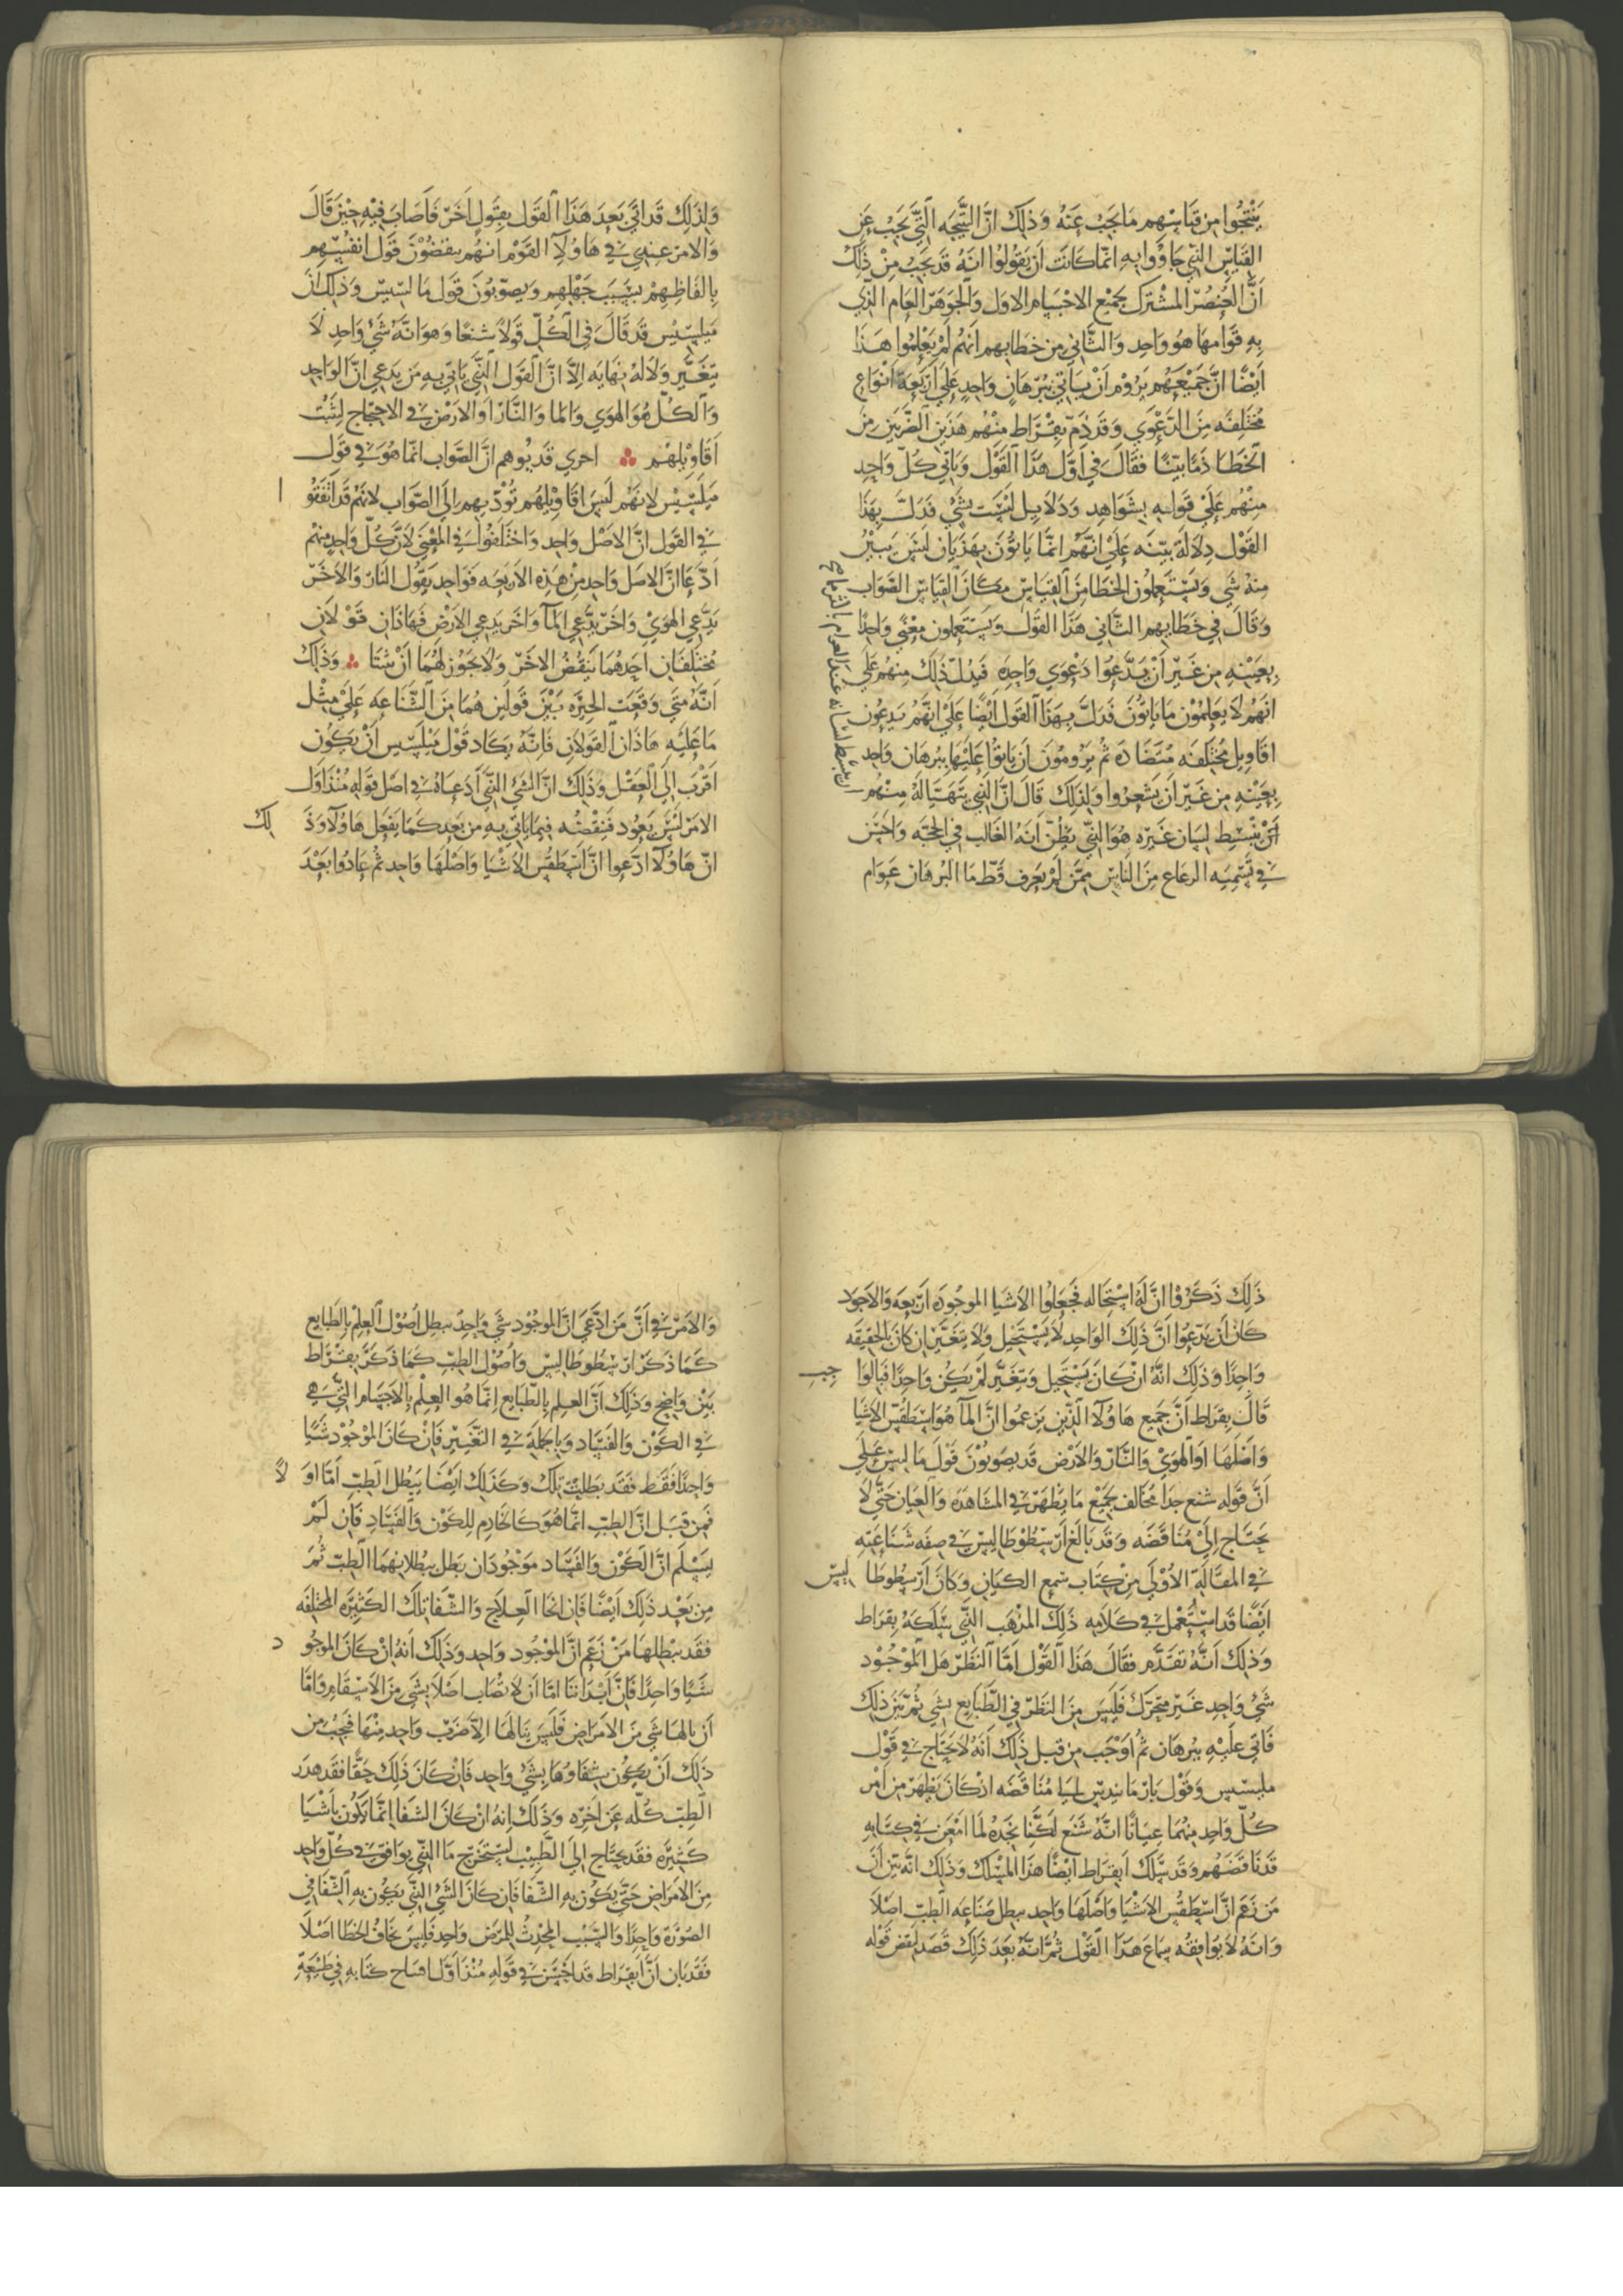 ينتجوا من قياسهم ما يجب عنه وذلك ان النتيجه التي يجب عن
القياس الذي جاؤوا به انما كانت ان يقولوا انه قد يجب من ذلك
ان العنصر المشترك لجميع الاجسام الاول والجوهر العام الذي
به قوامها هو واحد والثاني من خطابهم انهم لم يعلموا هذا
ايضا ان جميعهم يروم ان ياتي ببرهان واحد على اربعة انواع
مختلفه من الدعوي وقد ذم بقراط منهم هذين الضربين من
الخطا ذما بينا فقال في اول هذا القول وياتي كل واحد
منهم علي قوله بشواهد ودلايل ليست بشي فدل بهذا
القول دلالة بينه علي انهم انما ياتون بهذيان ليس يبين
منه شي ويستعملون الخطا من القياس مكان القياس الصواب
وقال في خطابهم الثاني هذا القول ويستعملون معني واحدا
بعينه من غير ان يدعوا دعوي واحده فيدل ذلك منهم علي
انهم لا يعلمون ما ياتون فدل بهذا القول ايضا علي انهم يدعون
اقاويل مختلفه متضاده ثم يرومون ان ياتوا عليها ببرهان واحد
بعينه من غير ان يشعروا ولذلك قال ان الذي يتهيا له منهم
ان ينبسط لسان غيره هو الذي يظن انه الغالب في الحجه واحسن
في تسميه الرعاع من الناس ممن لم يعرف قط ما البرهان عوام
ولذلك قد اتي بعد هذا القول بقول اخر فاصاب فيه حين قال
والامر عندي في هاولآ القوم انهم ينقضون قول انفسهم
بالفاظهم بسبب جهلهم ويصوبون قول مالسيس وذلك ان
ميليسيس قد قال في الكل قولا شنعا وهو انه شي واحد لا
يتغير ولا له نهايه الا ان القول الذي ياتي به من يدعي ان الواحد
والكل هو الهوي والما والنار او الارض في الاحتجاج لتثبت
اقاويلهم ؞ احري قد يوهم ان الصواب انما هو في قول
ميليسيس لانهم ليس اقاويلهم تؤد بهم الي الصواب لانهم قد اتفقوا
في القول ان الاصل واحد واختلفوا في المعني لان كل واحد منهم
ادعا ان الاصل واحد من هذه الاربعه فواحد يقول النار والاخر
يدعي الهوي واخر يدعي المآ واخر يدعي الارض فهاذان قولان
مختلفان احدهما ينقض الاخر ولا يجوز لهما ان ثبتا ؞ وذلك
انه متي وقعت الحيره بين قولين هما من الشناعه علي مثل
ما عليه هاذان القولان فانه يكاد قول ميليسيس ان يكون
اقرب الي العقل وذلك ان الشي الذي ادعاه في اصل قوله منذ اول
الامر ليس يعود فينقضه فيما ياتي به من بعد كما يفعل هاولآ وذلك
ان هاولآ ادعوا ان اسطقس الاشيا واصلها واحد ثم عادوا بعد
ذلك ذكروا ان له استحاله فجعلوا الاشيا الموجوده اربعه والاجود
كان ان يدعوا ان ذلك الواحد لا يستحيل ولا يتغير ان كان بالحقيقه
واحدا وذلك انه ان كان يستحيل ويتغير لم يكن واحدا فبالواجب
قال بقراط ان جميع هاولآ الذين يزعموا ان المآ هو اسطقس الاشيا
واصلها او الهوي والنار والارض قد يصوبون قول ماليسس علي
ان قوله شنع جدا مخالف لجميع ما يظهر في المشاهده والعيان حتي لا
يحتاج الي مناقضه وقد بالغ ارسطوطاليس في صفه شناعته
في المقالة الاولي من كتاب سمع الكيان وكان ارسطوطاليس
ايضا قد استعمل في كلامه ذلك المذهب الذي سلكه بقراط
وذلك انه تقدم فقال هذا القول اما النظر هل الموجود
شي واحد غير متحرك فليس من النظر في الطبايع بشي ثم بين ذلك
فاتي عليه ببرهان ثم اوجب من قبل ذلك انه لا يحتاج في قول
مليسس وقول بارمانيدس الي مناقضه اذ كان يظهر من امر
كل واحد منهما عيانا انه شنع لكنا نجده لما امعن في كتابه
قد ناقضهم وقد سلك ابقراط ايضا هذا المسلك وذلك انه بين ان
من زعم ان اسطقس الاشيا واصلها واحد يبطل صناعه الطب اصلا
وانه لا يوافقه سماع هذا القول ثم انه بعد ذلك قصد لنقض قوله
والامر في ان من ادعي ان الموجود شي واحد يبطل اصول العلم بالطبايع
كما ذكر ارسطوطاليس واصول الطب كما ذكر بقراط
بين واضح وذلك ان العلم بالطبايع انما هو العلم بالاجسام التي هي
في الكون والفساد وبالجملة في التغيير فان كان الموجود شيا
واحدا فقط فقد بطلت تلك وكذلك ايضا يبطل الطب اما اولا
فمن قبل ان الطب انما هو كالخادم للكون والفساد فان لم
يسلم ان الكون والفساد موجودان بطل ببطلانهما الطب ثم
من بعد ذلك ايضا فان انحا العلاج والشفا تلك الكثيره المختلفه
فقد يبطلها من زعم ان الموجود واحد وذلك انه ان كان الموجود
شيا واحدا فان ابداننا اما ان لا تصاب اصلا بشي من الاسقام واما
ان نالها شي من الامراض فليس ينالها الا ضرب واحد منها فيجب من
ذلك ان يكون شفاوها بشي واحد فان كان ذلك حقا فقد هدر
الطب كله عن اخره وذلك انه ان كان الشفا انما يكون باشيا
كثيره فقد يحتاج الي الطبيب ليستخرج ما الذي يوافق في كل واحد
من الامراض حتي يكون به الشفا فان كان الشي الذي يكون به الشفا في
الصوره واحدا والسبب المحدث للمرض واحد فليس يخاف الخطا اصلا
فقد بان ان ابقراط قد احسن في قوله منذ اول افتتاح كتابه في طبيعة